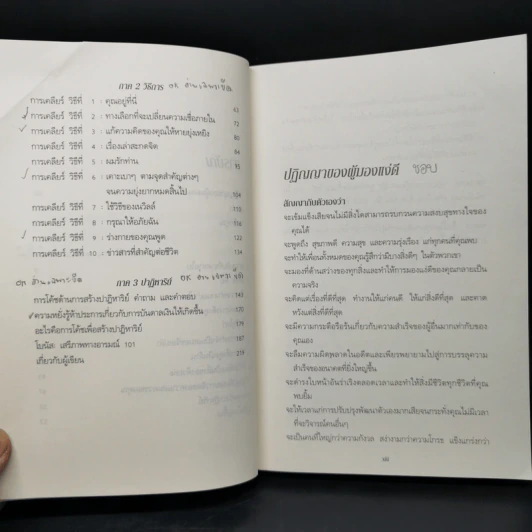 ภาค 2 วิธีการ
การเคลียร์ วิธีที่ 1 : คุณอยู่ที่นี่ 43
การเคลียร์ วิธีที่ 2 : ทางเลือกที่จะเปลี่ยนความเชื่อภายใน 72
การเคลียร์ วิธีที่ 3 : แก้ความคิดของคุณให้หายยุ่งเหยิง
การเคลียร์ วิธีที่ 4 : เรื่องเล่าสะกดจิต
การเคลียร์ วิธีที่ 5 : ผมรักท่าน
การเคลียร์ วิธีที่ 6 : เคาะเบาๆ ตามจุดสำคัญต่างๆ
จนความยุ่งยากหมดสิ้นไป 104
การเคลียร์ วิธีที่ 7 : ใช้วิธีของเนวิลล์
การเคลียร์ วิธีที่ 8 : กรุณาให้อภัยฉัน
การเคลียร์ วิธีที่ 9 : ร่างกายของคุณพูด 122
การเคลียร์ วิธีที่ 10 : ข่าวสารที่สำคัญต่อชีวิต 134
ภาค 3 ปาฏิหาริย์
การโค้ชด้านการสร้างปาฏิหาริย์ คำถาม และคำตอบ 143
ความหยั่งรู้ห้าประการเกี่ยวกับการบันดาลเงินให้เกิดขึ้น 170
อะไรคือการโค้ชเพื่อสร้างปาฏิหาริย์
โบนัส เสรีภาพทางอารมณ์ 101
เกี่ยวกับผู้เขียน
ปฏิญญาของผู้มองแง่ดี ชอบ
สัญญากับตัวเองว่า
จะเข้มแข็งเสียจนไม่มีสิ่งใดสามารถรบกวนความสงบสุขทางใจของ
คุณได้
จะพูดถึง สุขภาพดี ความสุข และความรุ่งเรือง แก่ทุกคนที่คุณพบ
จะทำให้เพื่อนทั้งหมดของคุณรู้สึกว่ามีบางสิ่งดีๆ ในตัวพวกเขา
จะมองที่ด้านสว่างของทุกสิ่งและทำให้การมองแง่ดีของคุณกลายเป็น
ความจริง
จะคิดแต่เรื่องที่ดีที่สุด ทำงานให้แก่คนดี ให้แก่สิ่งที่ดีที่สุด และคาด
หวังแต่สิ่งที่ดีที่สุด
จะมีความกระตือรือร้นเกี่ยวกับความสำเร็จของผู้อื่นมากเท่ากับของ
คุณเอง
จะลืมความผิดพลาดในอดีตและเพียรพยายามไปสู่การบรรลุความ
สำเร็จของอนาคตที่ยิ่งใหญ่ขึ้น
จะดำรงใบหน้าอันร่าเริงตลอดเวลาและทำให้สิ่งมีชีวิตทุกชีวิตที่คุณ
พบยิ้ม
จะให้เวลาแก่การปรับปรุงพัฒนาตัวเองมากเสียจนกระทั่งคุณไม่มีเวลา
ที่จะวิจารณ์คนอื่นๆ
จะเป็นคนที่ใหญ่กว่าความกังวล สง่างามกว่าความโกรธ แข็งแกร่งกว่า